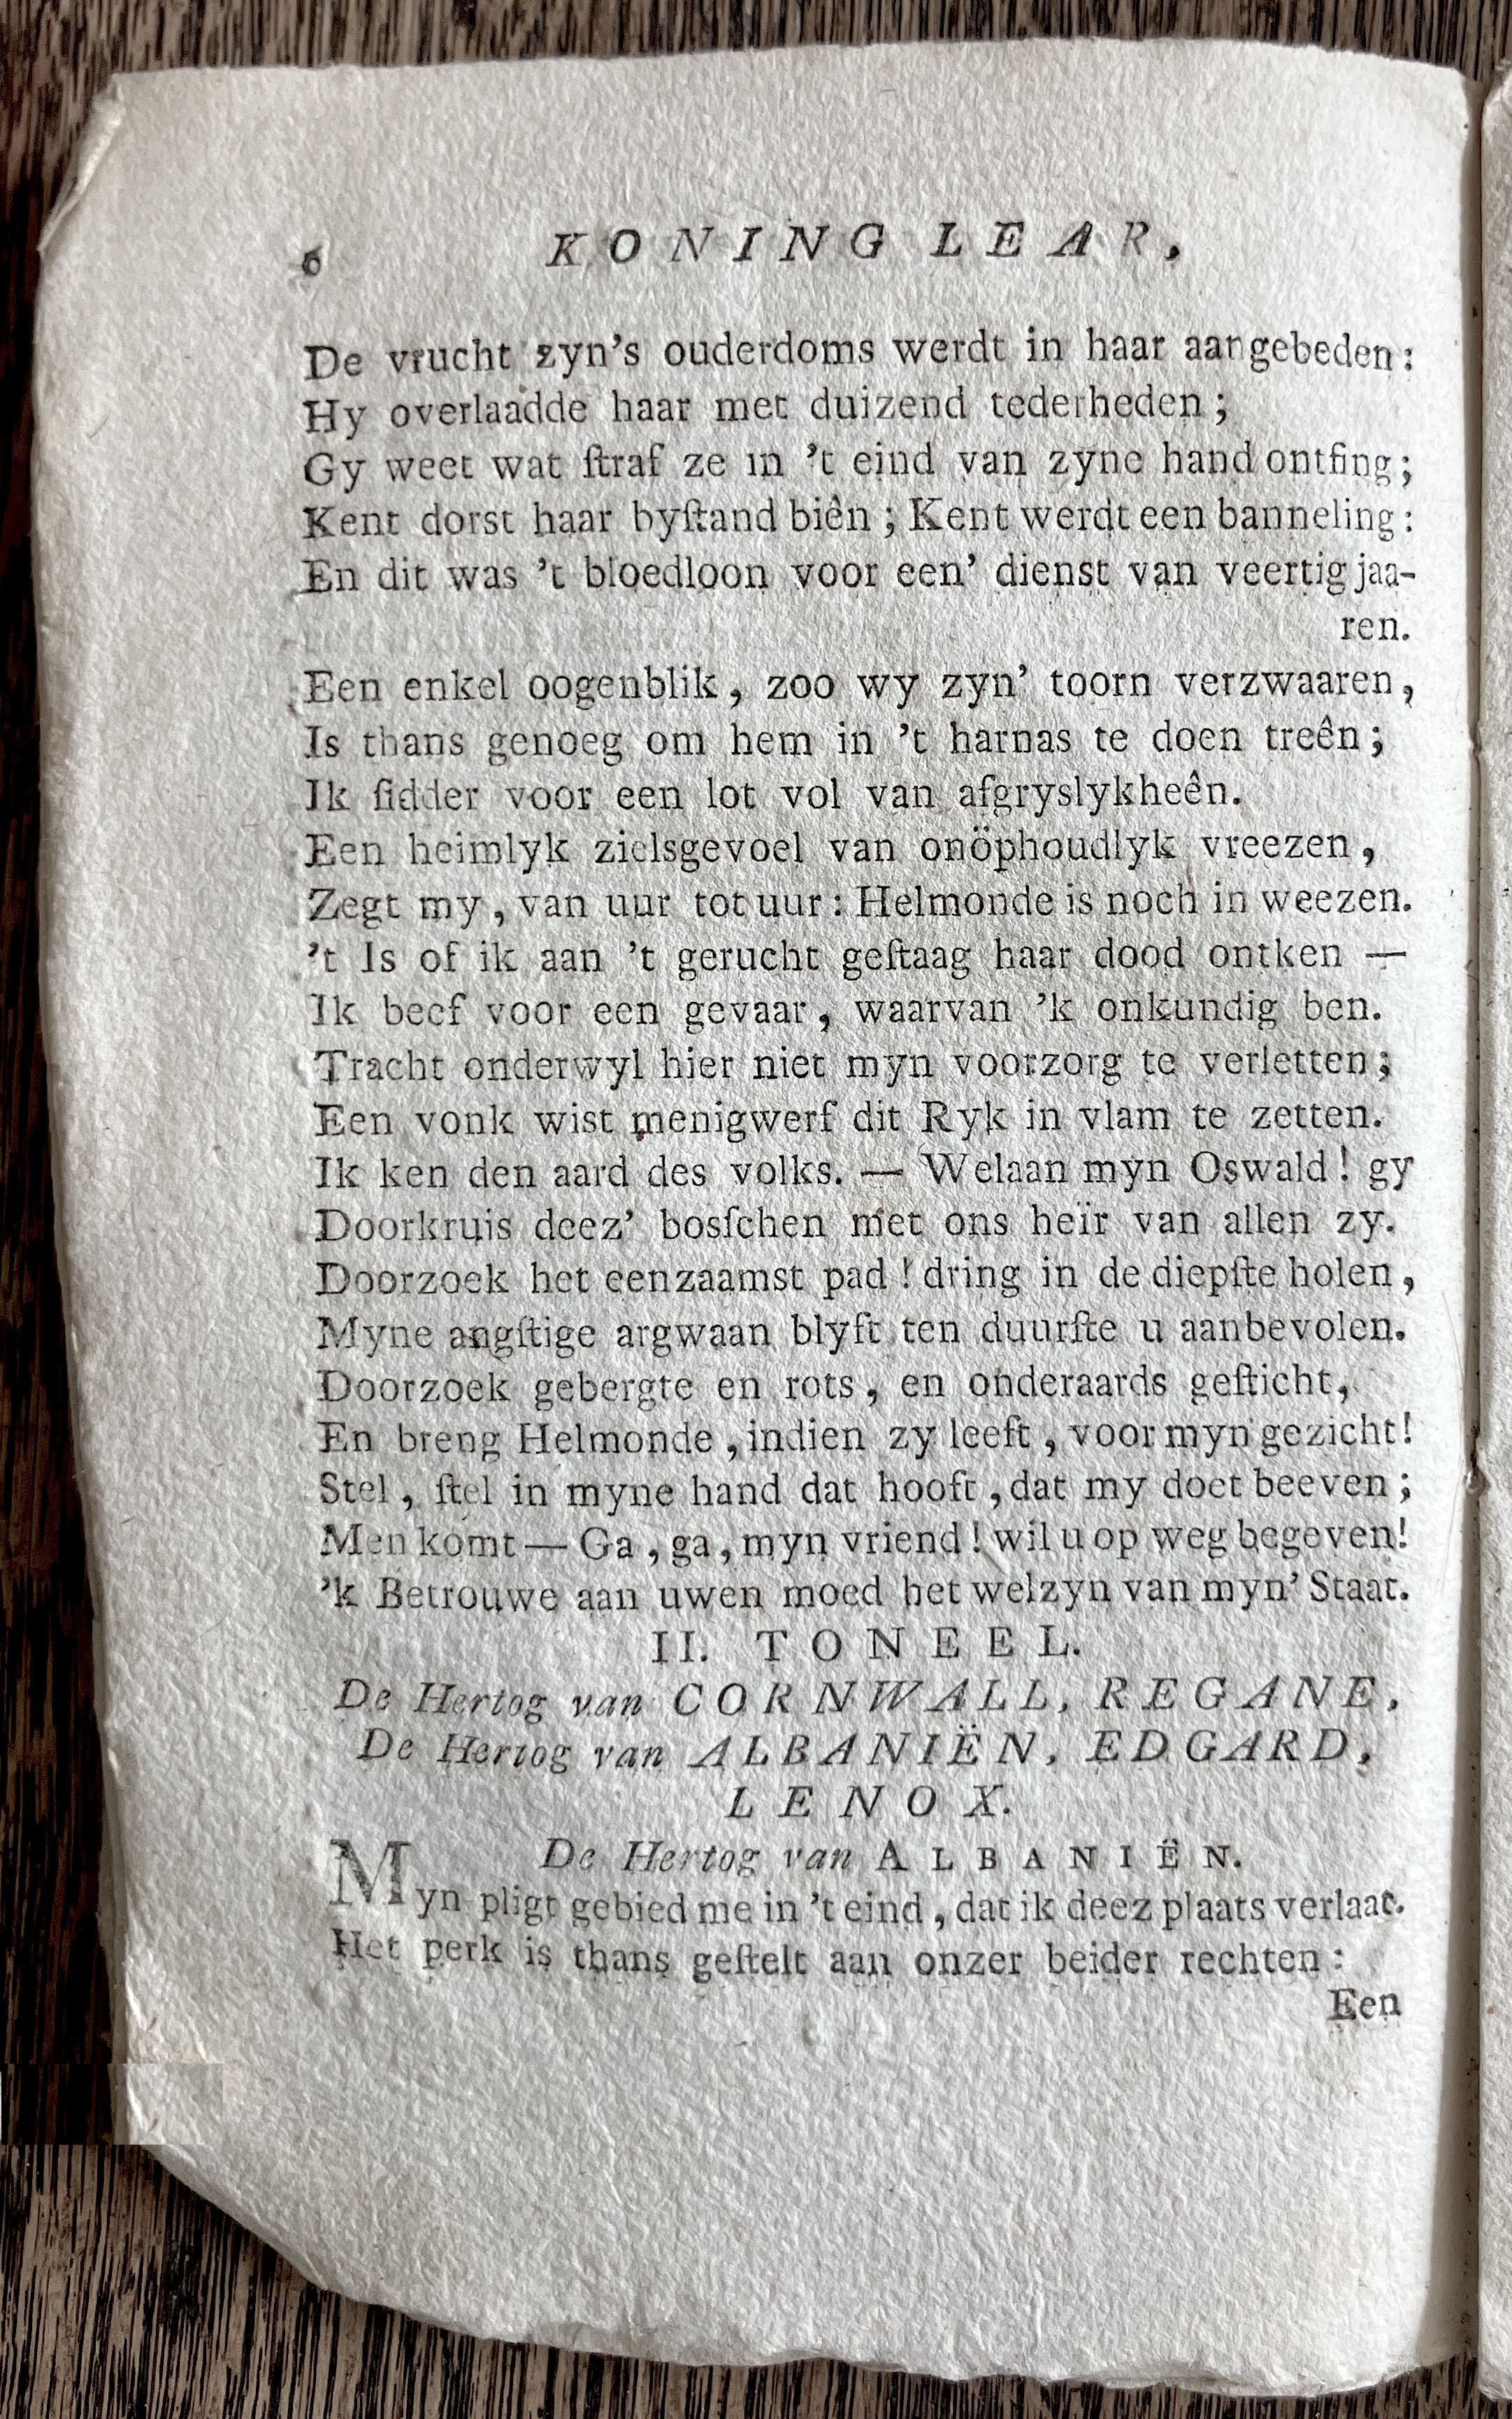 6 KONING LEAR,
De vrucht zyn's ouderdoms werdt in haar aangebeden:
Hy overlaadde haar met duizend tederheden;
Gy weet wat ſtraf ze in 't eind van zyne hand ontfing;
Kent dorst haar byſtand biên; Kent werdt een banneling:
En dit was 't bloedloon voor een' dienst van veertig jaa-
ren.
Een enkel oogenblik, zoo wy zyn' toorn verzwaaren,
Is thans genoeg om hem in 't harnas te doen treên;
Ik ſidder voor een lot vol van afgryslykheên.
Een heimlyk zielsgevoel van onöphoudlyk vreezen,
Zegt my, van uur tot uur: Helmonde is noch in weezen.
't Is of ik aan 't gerucht geſtaag haar dood ontken —
Ik beef voor een gevaar, waarvan 'k onkundig ben.
Tracht onderwyl hier niet myn voorzorg te verletten;
Een vonk wist menigwerf dit Ryk in vlam te zetten.
Ik ken den aard des volks. — Welaan myn Oswald! gy
Doorkruis deez' bosſchen met ons heïr van allen zy.
Doorzoek het eenzaamst pad! dring in de diepſte holen,
Myne angſtige argwaan blyft ten duurſte u aanbevolen.
Doorzoek gebergte en rots, en onderaards geſticht,
En breng Helmonde, indien zy leeft, voor myn gezicht!
Stel, ſtel in myne hand dat hooft, dat my doet beeven;
Men komt — Ga, ga, myn vriend! wil u op weg begeven!
'k Betrouwe aan uwen moed het welzyn van myn' Staat.
II. TONEEL.
De Hertog van CORNWALL, REGANE,
De Hertog van ALBANIËN, EDGARD,
LENOX.
De Hertog van ALBANIËN.
Myn pligt gebied me in 't eind, dat ik deez plaats verlaat.
Het perk is thans geſtelt aan onzer beider rechten:
Een